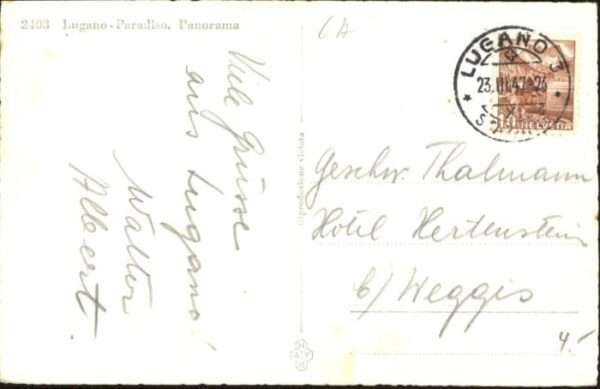 2403 Lugano-Paradiso. Panorama
Viele Grüsse
aus Lugano!
Walter
Albert.
CA
LUGANO 3
HELVETIA
Riproduzione vietata
Geschw. Thalmann
Hotel Hertenstein
b/ Weggis
4.-